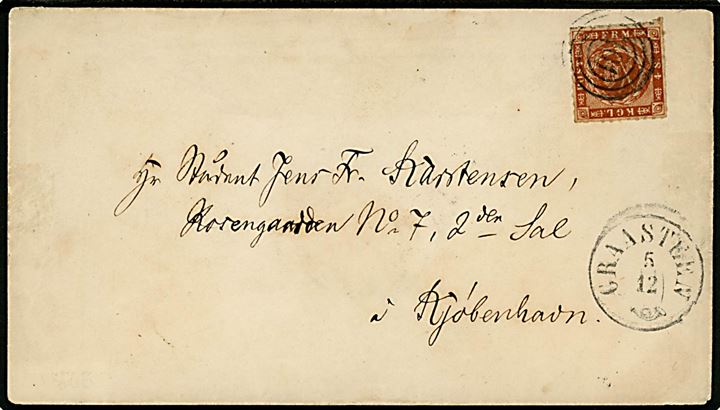 FRM.
KGL.
Hr Student Jens Fr. Karstensen,
Rosengaarden No 7, 2den Sal
i Kjøbenhavn.
GRAASTEEN
5
12